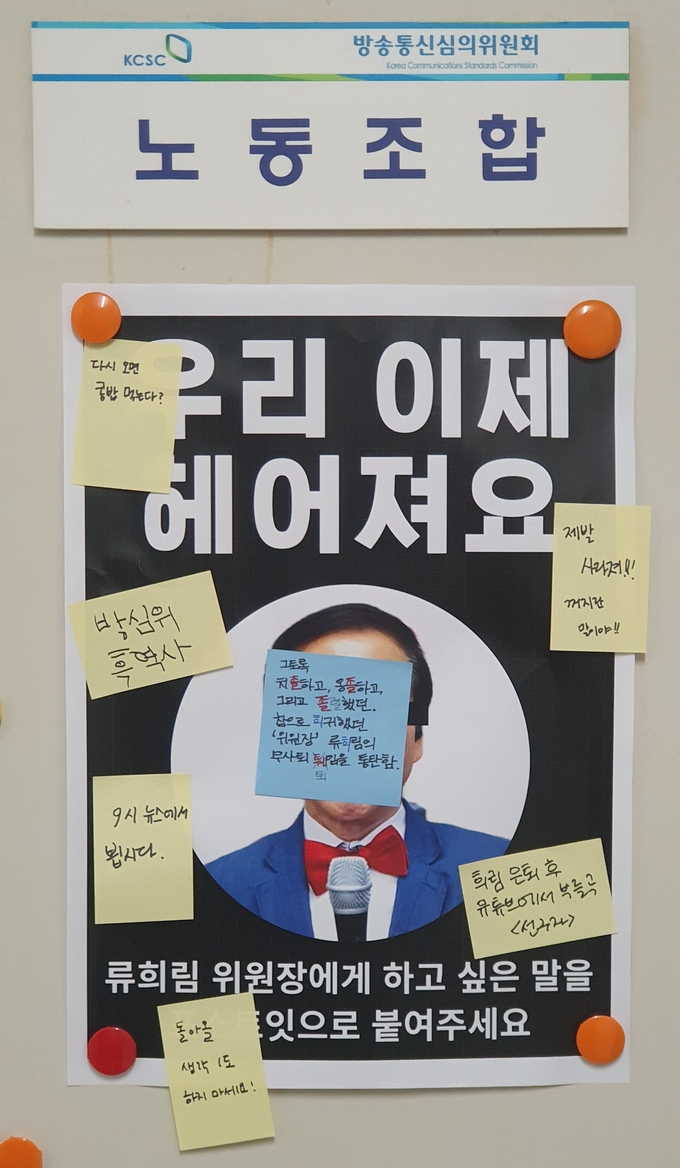 KCSC
방송통신심의위원회
Korea Communications Standards Commission
노동조합
우리 이제
헤어져요
다시 오면
굥밥 먹는다?
제발
사라져!!
꺼지란
말이야!!
박심위
흑역사
그토록
치졸하고, 옹졸하고,
그리고 졸렬했던.
참으로 희귀했던
'위원장' 류희림의
무사퇴 임을 통탄함.
퇴
9시 뉴스에서
뵙시다.
희림 은퇴 후
유튜브에서
<선구자>
류희림 위원장에게 하고 싶은 말을
포스트잇으로 붙여주세요
돌아올
생각 1도
하지 마세요!